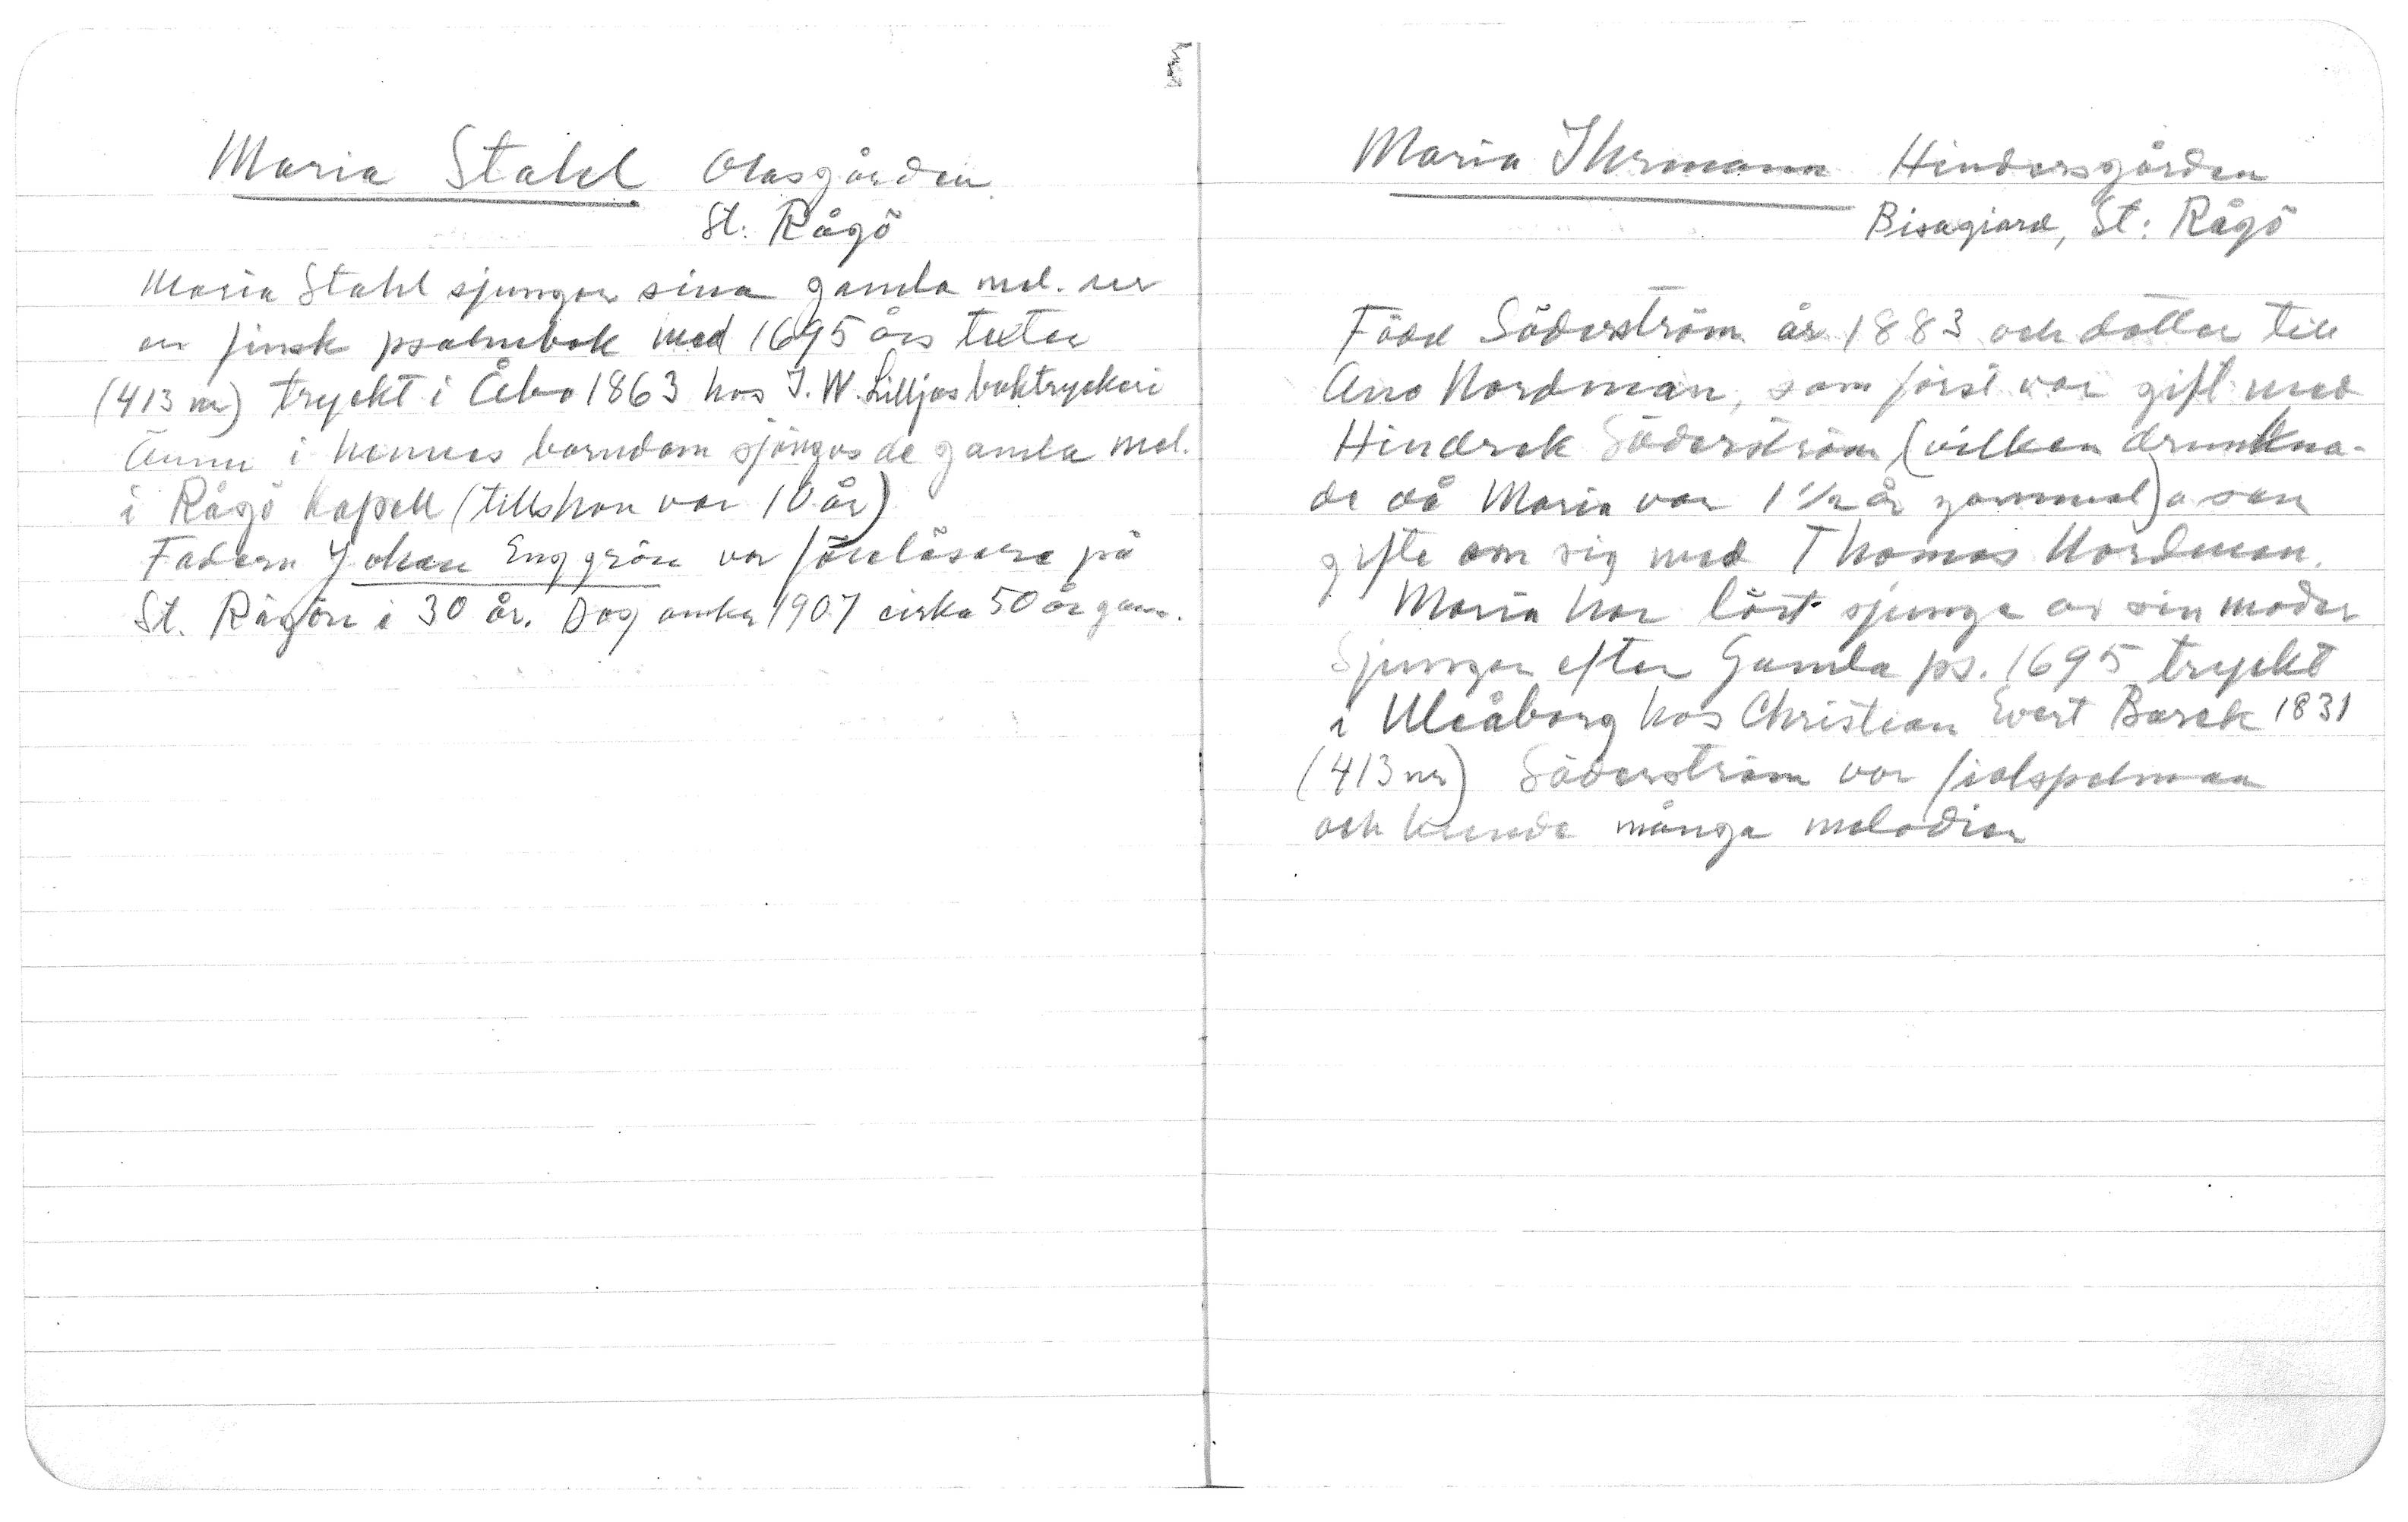 Maria Stahl Olasgården
St. Rågö
Maria Stahl sjunger sina gamla mel. ur
en finsk psalmbok med 1695 års texter
(413 nr) tryckt i Åbo 1863 hos J. W. Lilljas boktryckeri
Ännu i hennes barndom sjöngos de gamla mel.
i Rågö kapell (tills hon var 10 år)
Fadern Johan Enggrön var föreläsare på
St. Rågön i 30 år. Dog omkr 1907 cirka 50 år gam.
Maria Ihrmann Hindersgården
Bisagiard, St: Rågö
Född Söderström år 1883 och dotter till
Ano Nordman, som först var gift med
Hindrek Söderström (vilken drunkna-
de då Maria var 1 1/2 år gammal) o sen
gifte om sig med Thomas Nordman.
Maria har lärt sjunga av sin moder
Sjunger efter Gamla ps. 1695 tryckt
i Uleåborg hos Christian Evert Barck 1831
(413 nr) Söderström var fiolspelman
och kunde många melodier